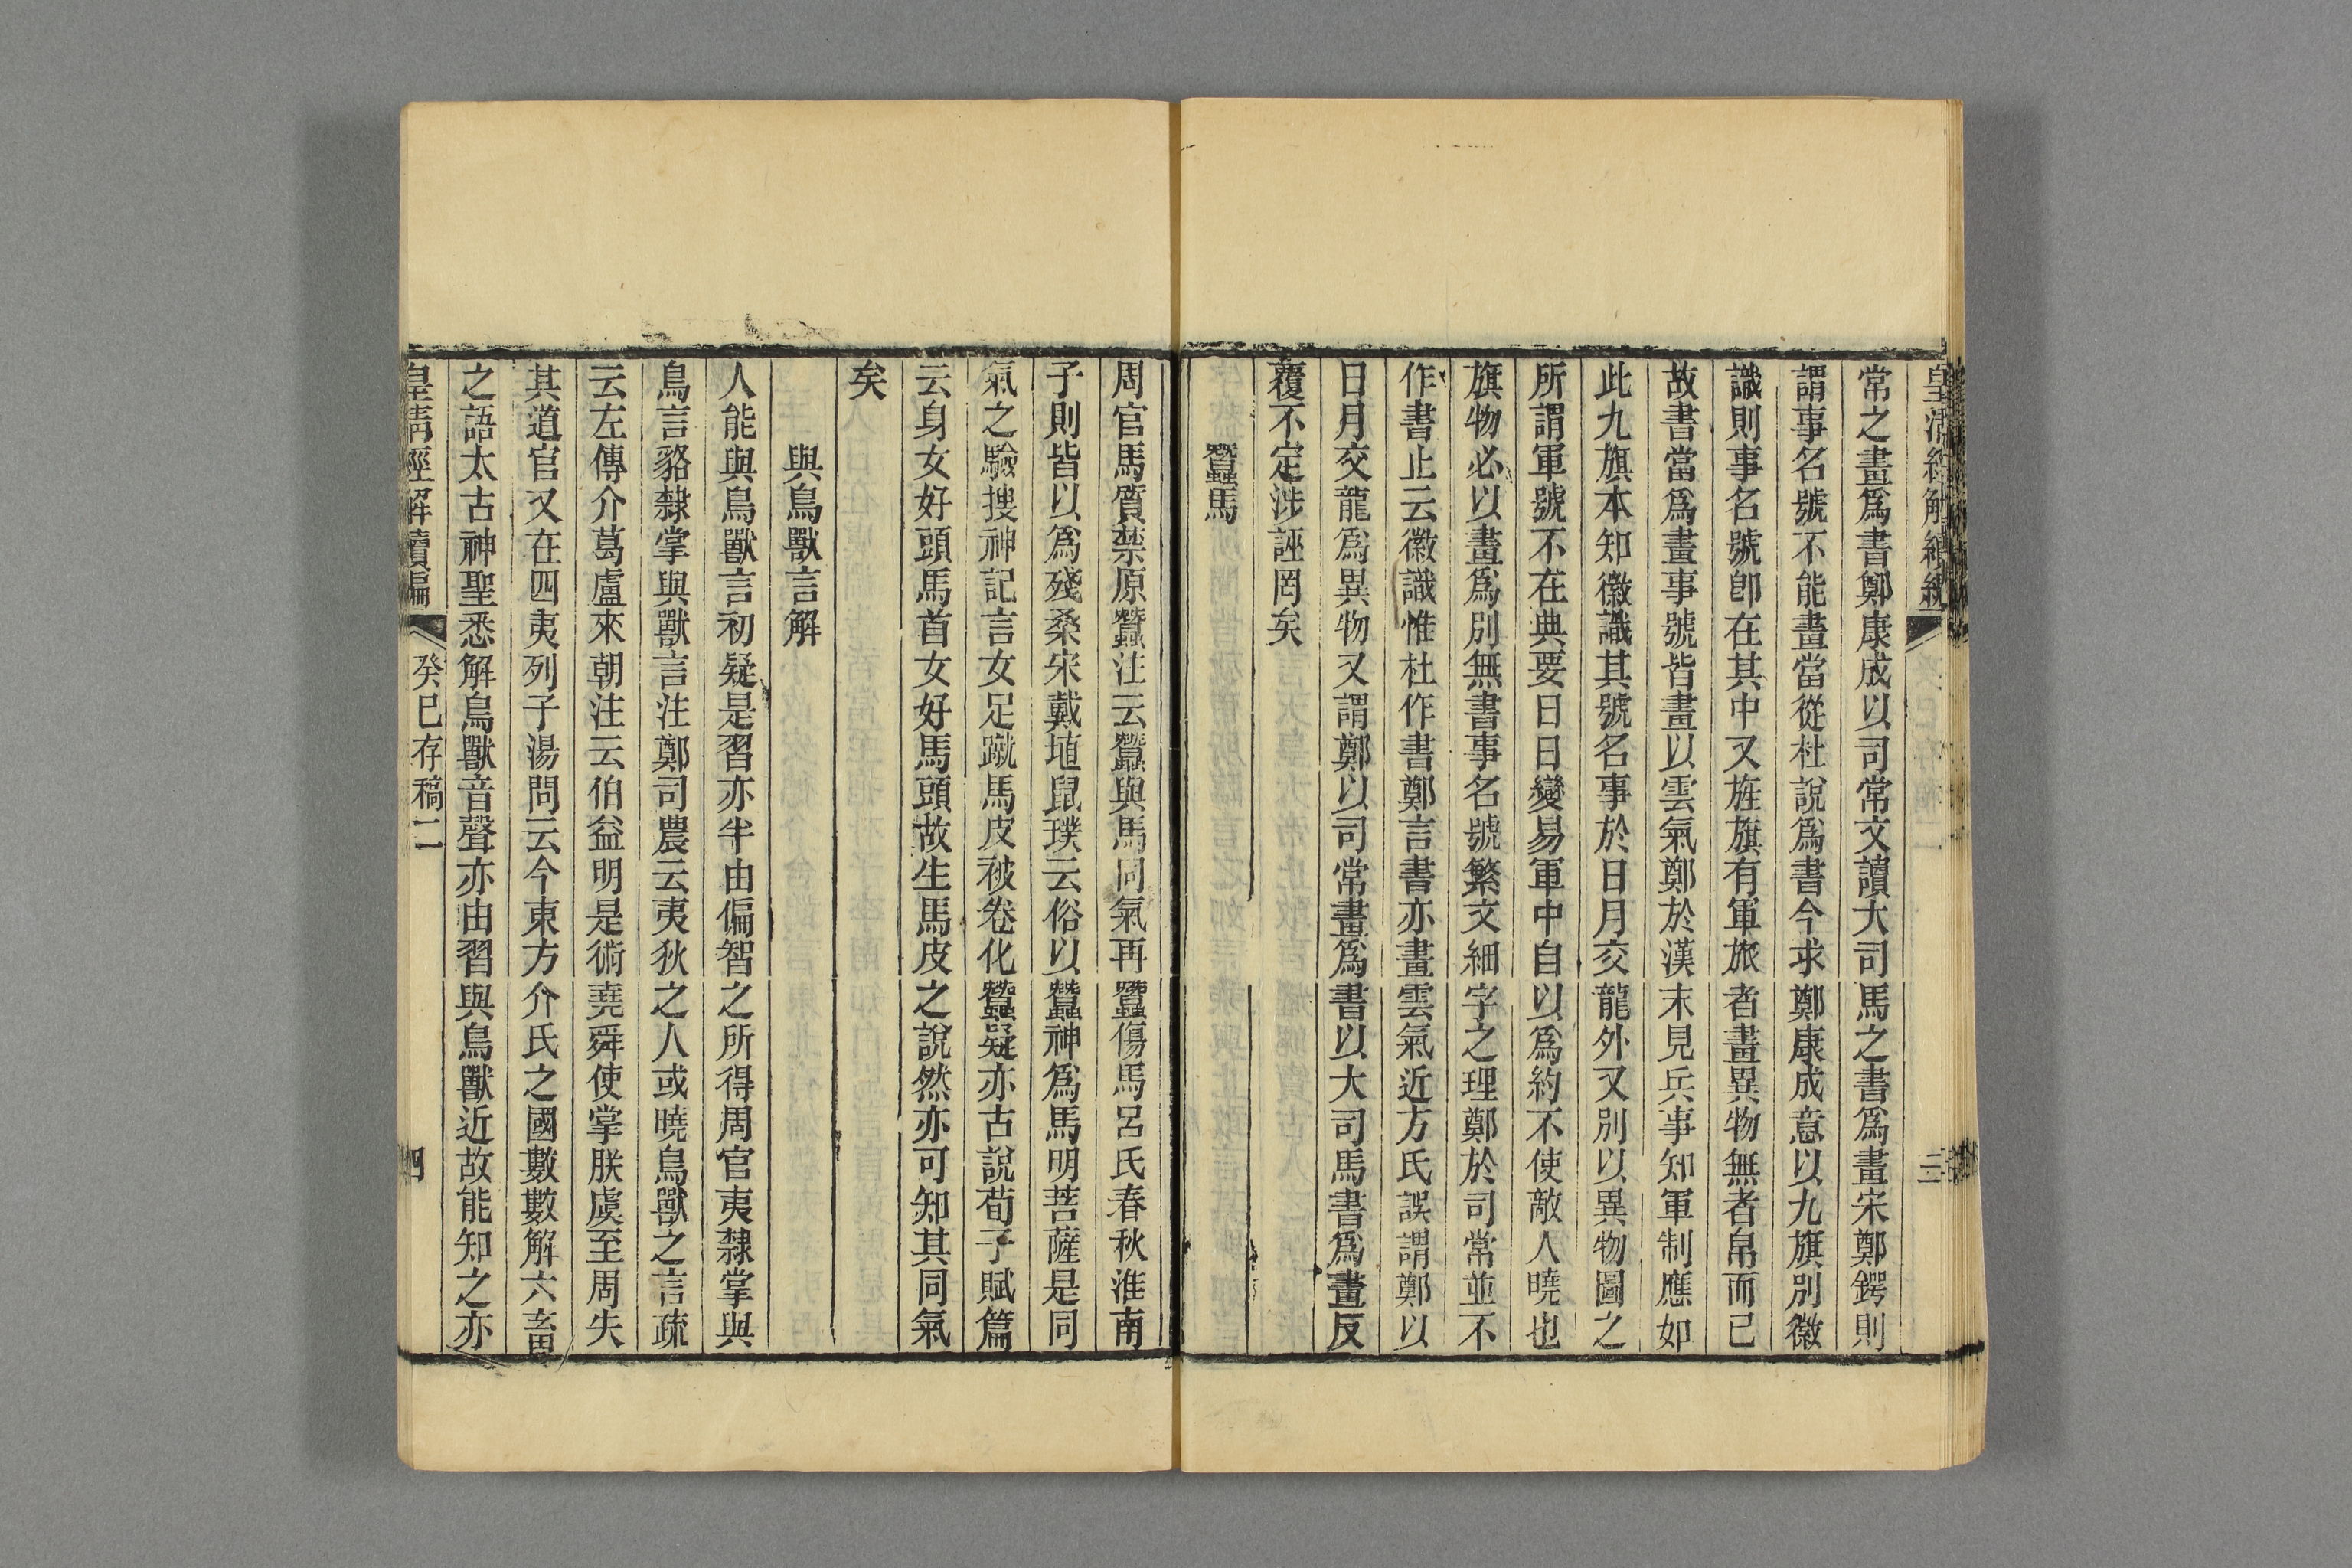 皇清經解續編
三
常之畫爲書鄭康成以司常文讀大司馬之書爲畫宋鄭鍔則
謂事名號不能畫當從杜說爲書今求鄭康成意以九旗別徽
識則事名號卽在其中又旌旗有軍旅者畫異物無者帛而已
故書當爲畫事號皆畫以雲氣鄭於漢末見兵事知軍制應如
此九旗本知徽識其號名事於日月交龍外又別以異物圖之
所謂軍號不在典要日日變易軍中自以爲約不使敵人曉也
旗物必以畫爲別無書事名號繁文細字之理鄭於司常並不
作書止云徽識惟杜作書鄭言書亦畫雲氣近方氏誤謂鄭以
日月交龍爲異物又謂鄭以司常畫爲書以大司馬書爲畫反
覆不定涉誣罔矣
蠶馬
周官馬質禁原蠶注云蠶與馬同氣再蠶傷馬呂氏春秋淮南
子則皆以爲殘桑宋戴埴鼠璞云俗以蠶神爲馬明菩薩是同
氣之驗搜神記言女足蹴馬皮被卷化蠶疑亦古說荀子賦篇
云身女好頭馬首女好馬頭故生馬皮之說然亦可知其同氣
矣
與鳥獸言解
人能與鳥獸言初疑是習亦半由偏智之所得周官夷隸掌與
鳥言貉隸掌與獸言注鄭司農云夷狄之人或曉鳥獸之言疏
云左傳介葛盧來朝注云伯益明是術堯舜使掌朕虞至周失
其道官又在四夷列子湯問云今東方介氏之國數數解六畜
之語太古神聖悉解鳥獸音聲亦由習與鳥獸近故能知之亦
皇清經解續編
癸巳存稿二
四